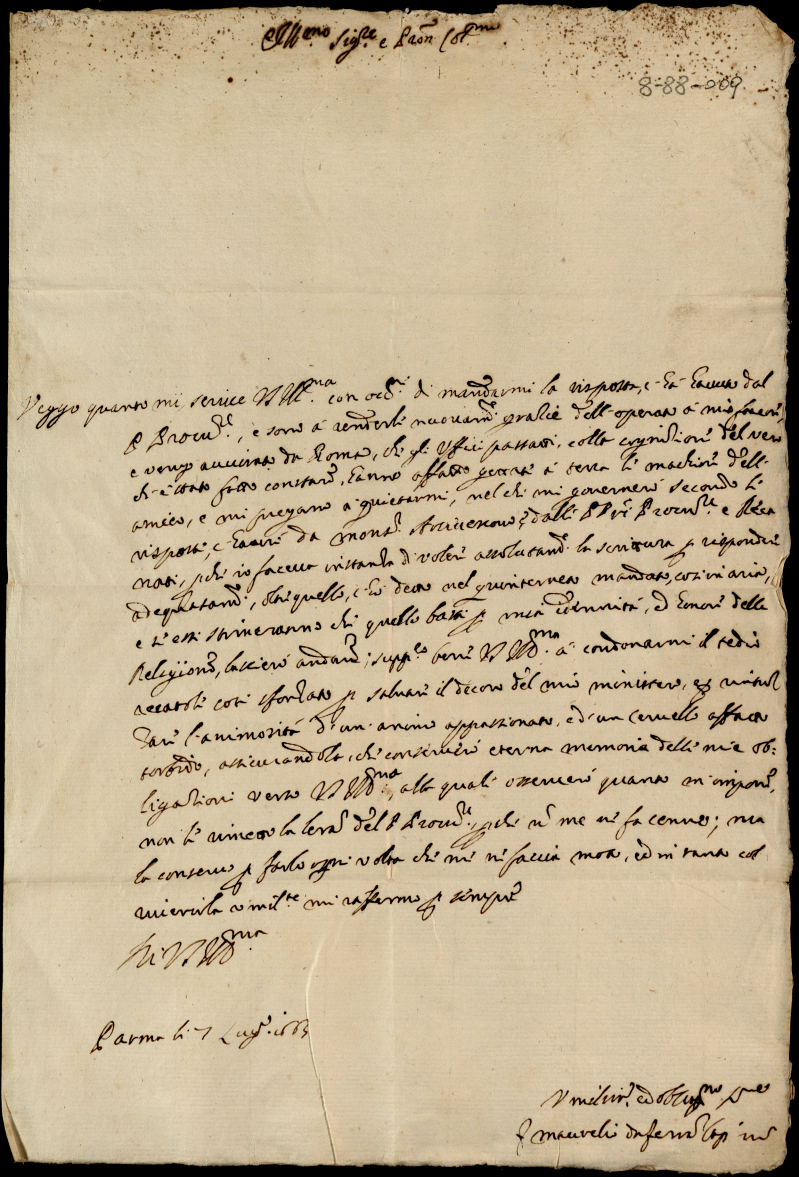 Ill.mo Sig.re e Pron Col.mo
8-88-009
Veggo quanto mi scrive V. Ill.ma con di mandarmi la risposta, c'hà havuta dal
P Procur.re, e sono à renderli nuovam.e gratie dell'operato à mio favore,
e vengo da Roma, che gl'Uffici passati, colla cognitione del vero
ch'è stato fatto constare, hanno affatto gettate à terra le machine dell'
amico, e mi pregano à quietarmi, nel che mi governerò secondo le
risposte, c'havrò da Mons.r Arcivescovo, e dalli P Pri Procur.re e
nati, pche io faceva instanza di voler assolutam. la scrittura p rispondere
adequatam., oltre quello, c'hò detto nel quinternetto mandato costì in aria,
e s'essi stimeranno che quello basti p mia indennità, ed honore della
Religione, lascierò andare; supp.co bene V. Ill.ma à condonarmi il tedio
recatoli così sforzato p salvare il decoro del mio ministero, e
l'animosità d'un animo appassionato, e d'un cervello affatto
torbido, assicurandola, che conserverò eterna memoria delle mie ob=
ligationi verso V. Ill.ma, alla quale osserverò quanto m'impone,
non le rimetto la lettera del P Procur.re, pche n me ne fa cenno; ma
la conservo p farlo ogni volta che me ne faccia motto, ed in tanto col
riverirla umil.te mi raffermo p sempre
Di V. Ill.ma
Parma li 7 Lug.o
Umiliss. ed oblig.mo
F Maurelio da Ferrara Cap